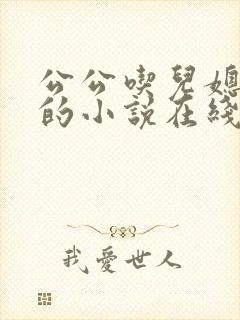 公公喫兒媳
的小說在綫
我愛世人